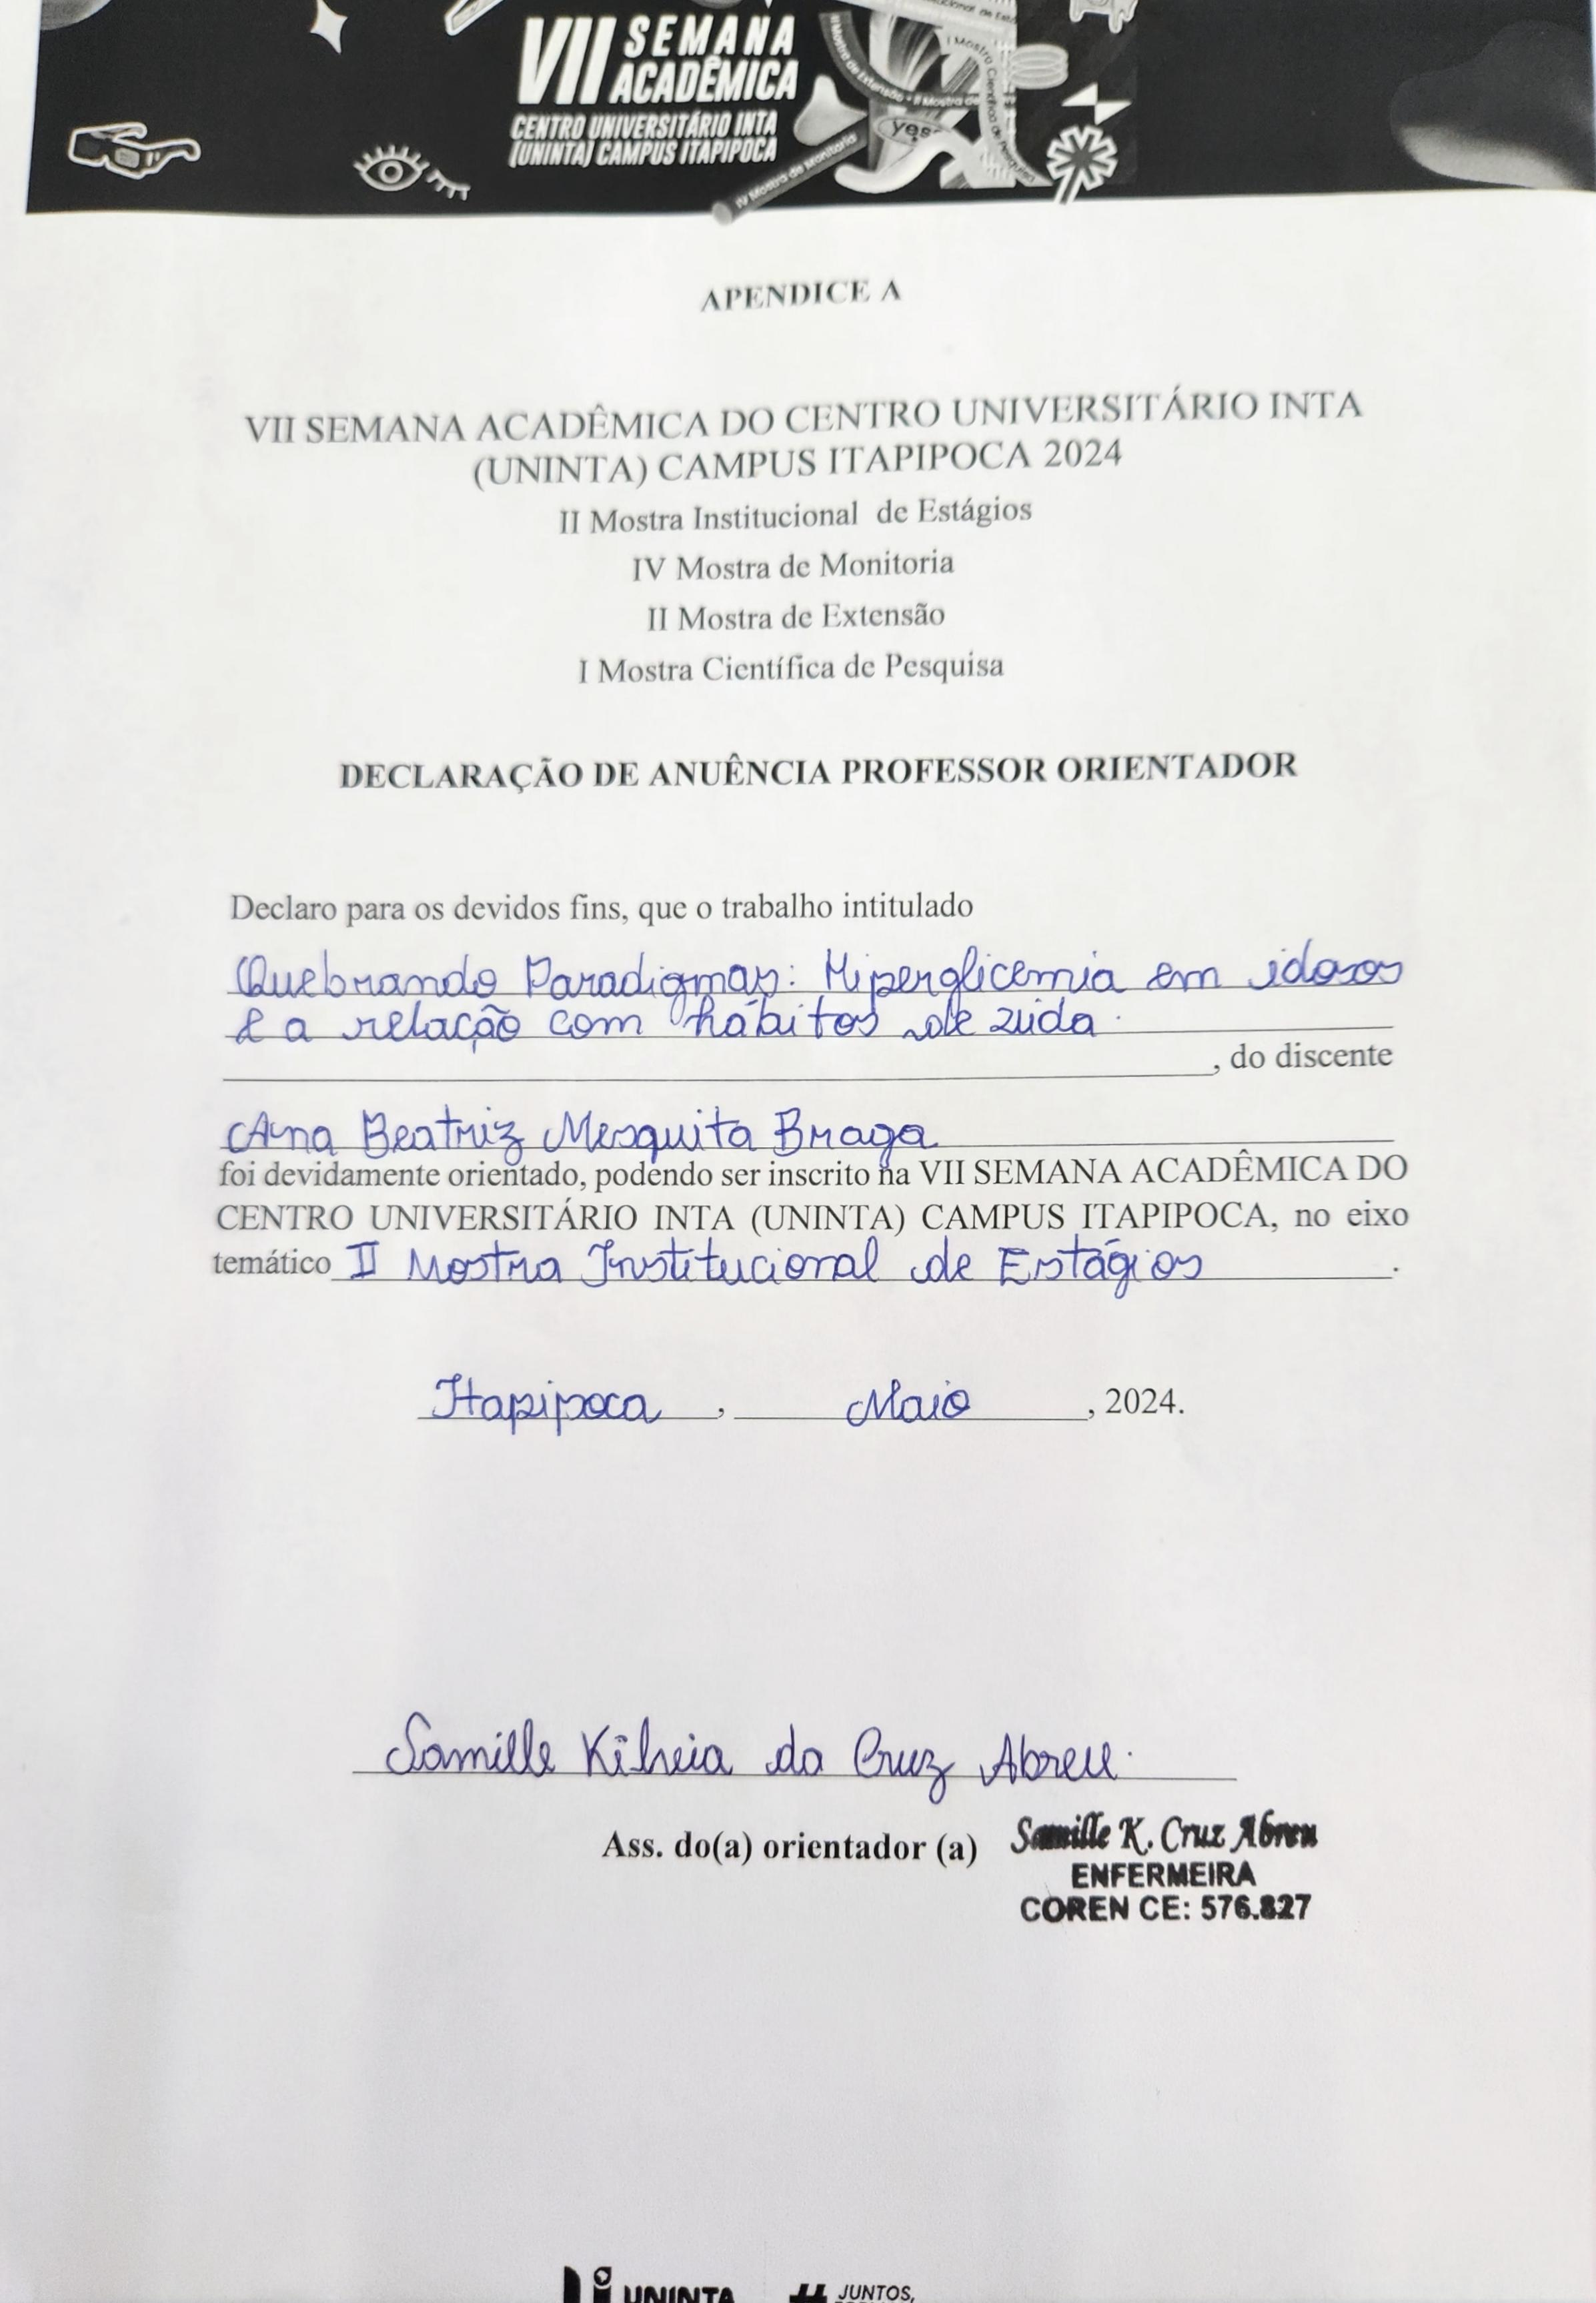 VII SEMANA
ACADÊMICA
CENTRO UNIVERSITÁRIO INTA
(UNINTA) CAMPUS ITAPIPOCA
IV Mostra de Monitoria
yes
APENDICE A
VII SEMANA ACADÊMICA DO CENTRO UNIVERSITÁRIO INTA
(UNINTA) CAMPUS ITAPIPOCA 2024
II Mostra Institucional de Estágios
IV Mostra de Monitoria
II Mostra de Extensão
I Mostra Científica de Pesquisa
DECLARAÇÃO DE ANUÊNCIA PROFESSOR ORIENTADOR
Declaro para os devidos fins, que o trabalho intitulado
Quebrando Paradigmas: Hiperglicemia em idosos
e a relação com hábitos de vida.
, do discente
Ana Beatriz Mesquita Braga
foi devidamente orientado, podendo ser inscrito na VII SEMANA ACADÊMICA DO
CENTRO UNIVERSITÁRIO INTA (UNINTA) CAMPUS ITAPIPOCA, no eixo
temático II Mostra Institucional de Estágios.
Itapipoca, Maio, 2024.
Samille Kilvia da Cruz Abreu.
Ass. do(a) orientador (a)
Samille K. Cruz Abreu
ENFERMEIRA
COREN CE: 576.827
UNINTA
# JUNTOS,